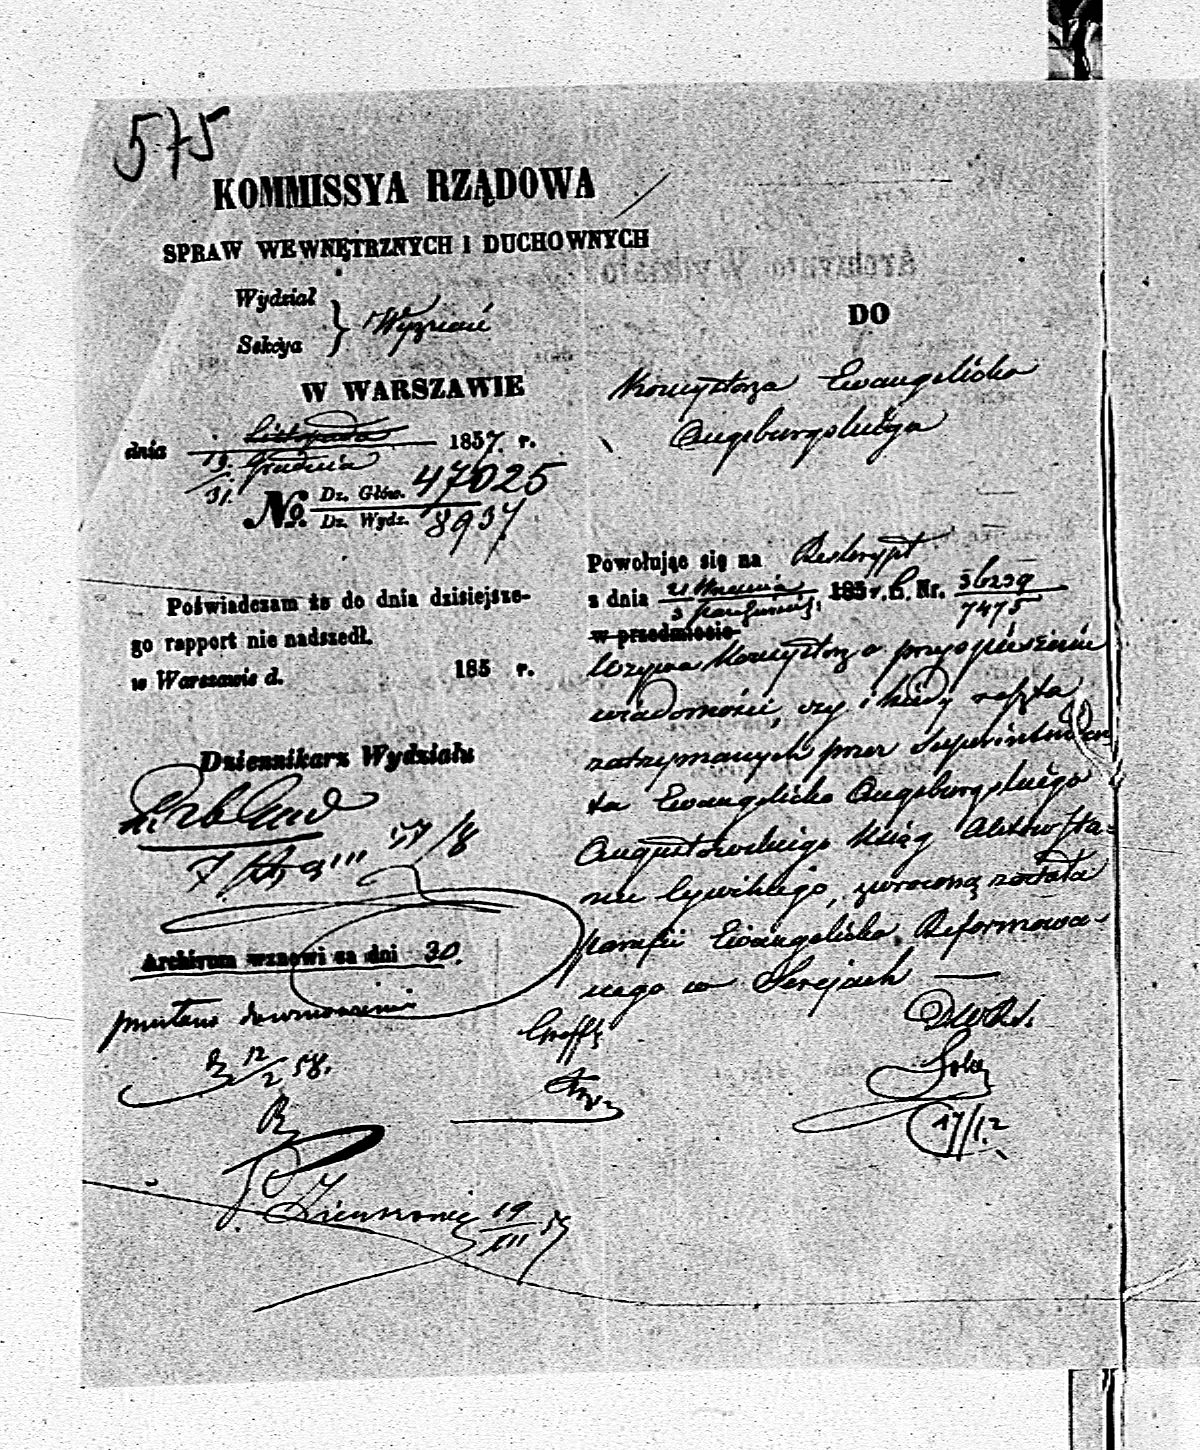 575
KOMMISSYA RZĄDOWA
SPRAW WEWNĘTRZNYCH I DUCHOWNYCH
Wydział
Sekcya
Wyznań
W WARSZAWIE
dnia Listopada 1857 r.
19/31. Grudnia
No. Dz. Głów. 47025
Dz. Wydz. 8937
Poświadczam że do dnia dzisiejsze-
go rapport nie nadszedł.
w Warszawie d. 185 r.
Dziennikarz Wydziału
57/8
Archivum wznowi za dni 30.
12/2 58.
19/XII 57
DO
Konsystorza Ewangelicko
Augsburgskiego
Powołując się na Reskrypt
z dnia 21 Września 185 r. Nr. 36239
3 Października 7475
w przedmiocie
Wzywa Konsystorz o przyspieszenie
wiadomości, czy i kiedy reszta
zatrzymanych przez Superintenden
ta Ewangelicko Augsburgskiego
Augustowskiego Xiąg Aktów Sta-
nu Cywilnego, zwróconą została
parafii Ewangelicko Reformowa-
nego w Serejach
17/12